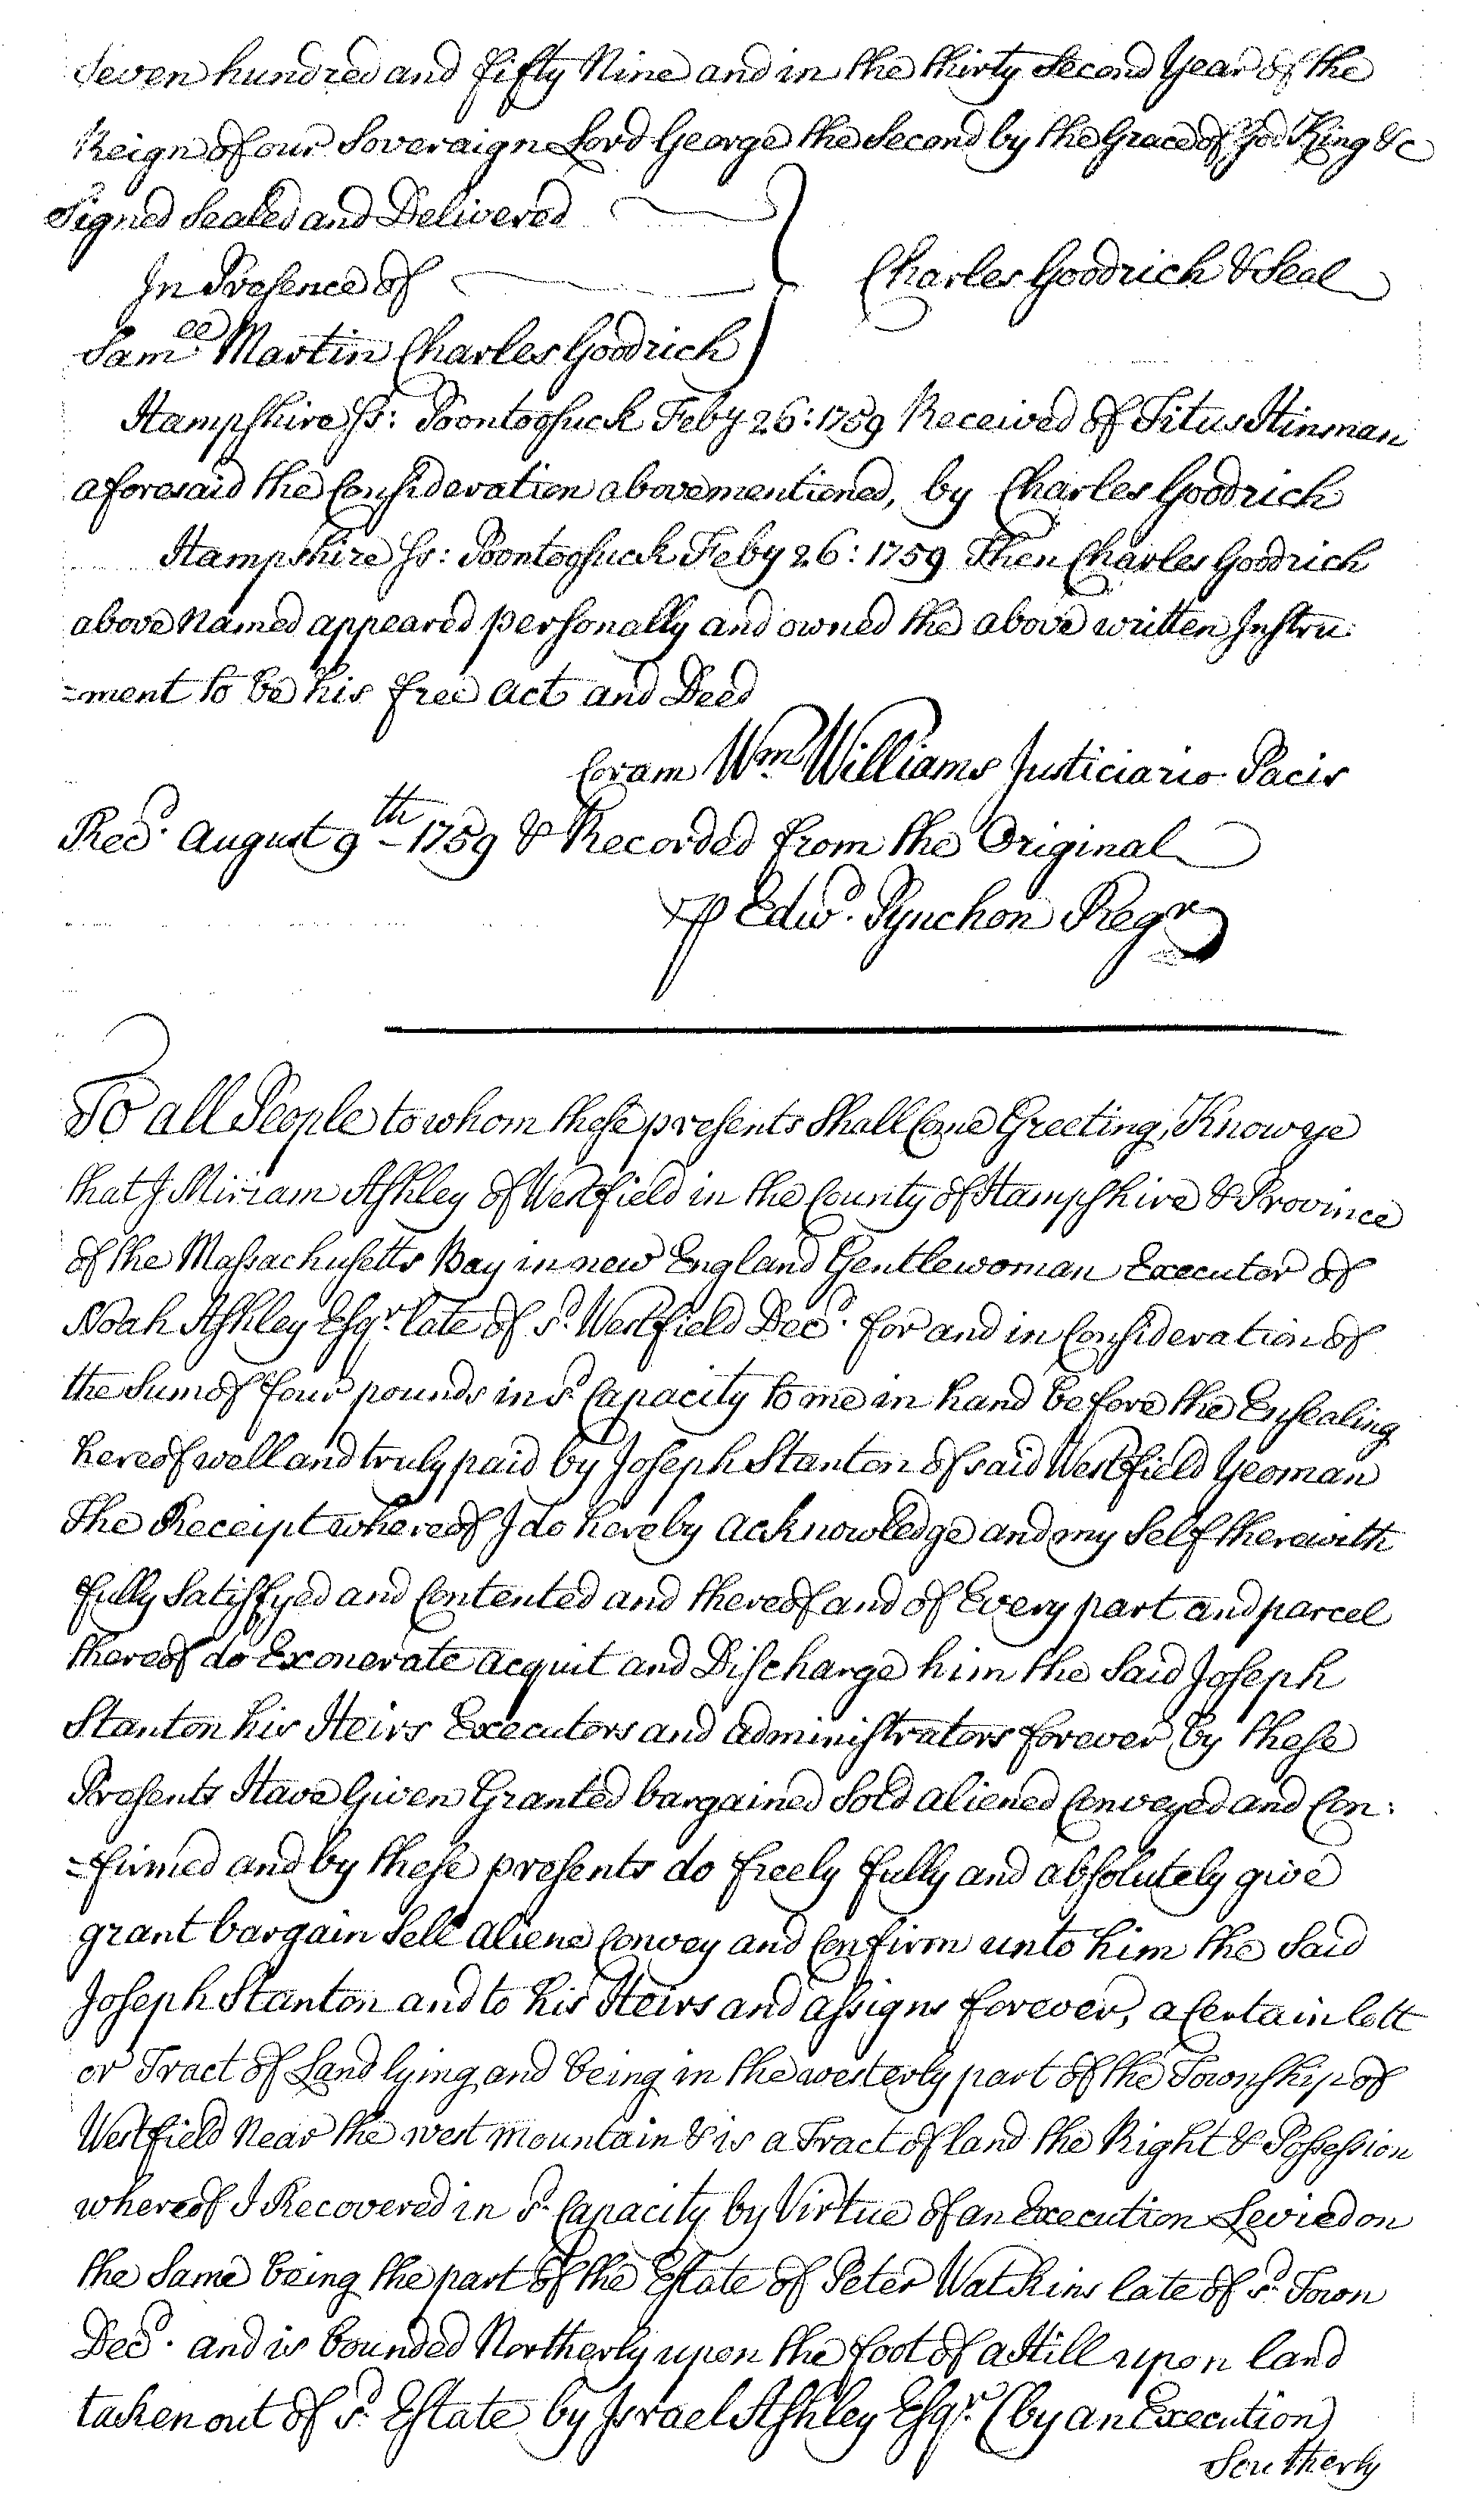 Seven hundred and fifty Nine and in the thirty Second Year of the
Reign of our Soveraign Lord George the Second by the Grace of God King &c
Signed Sealed and Delivered
In Presence of
Charles Goodrich & Seal
Samll Martin Charles Goodrich
Hampshire Ss: Poontoosuck Feby 26: 1759 Received of Titus Hinman
aforesaid the Consideration abovementioned, by Charles Goodrich
Hampshire Ss: Poontoosuck Feby 26: 1759 Then Charles Goodrich
above Named appeared personally and owned the above written Instru:
=ment to be his free Act and Deed
Coram Wm Williams Justiciario Pacis
Recd. August 9th - 1759 & Recorded from the Original
⅌ Edwd. Pynchon Regr
To all People to whom these presents Shall Come Greeting, Know ye
that I Miriam Ashley of Westfield in the County of Hampshire & Province
of the Massachusetts Bay in new England Gentlewoman Executor of
Noah Ashley Esqr. late of sd. Westfield Decd. for and in Consideration of
the Sum of four pounds in sd. Capacity to me in hand before the Ensealing
hereof well and truly paid by Joseph Stanton of said Westfield Yeoman
The Receipt whereof I do hereby acknowledge and my Self therewith
fully Satisfyed and Contented and thereof and of Every part and parcel
thereof do Exonerate acquit and Discharge him the Said Joseph
Stanton his Heirs Executors and administrators forever by these
Presents Have Given Granted bargained Sold aliened Conveyed and Con:
=firmed and by these presents do freely fully and absolutely give
grant bargain Sell aliene Convey and Confirm unto him the Said
Joseph Stanton and to his Heirs and assigns forever, a Certain lott
or Tract of Land lying and being in the westerly part of the Township of
Westfield Near the west mountain & is a Tract of land the Right & Possession
whereof I Recovered in sd. Capacity by Virtue of an Execution Levied on
the Same being the part of the Estate of Peter Watkins late of sd. Town
Decd. and is bounded Northerly upon the foot of a Hill upon land
taken out of sd. Estate by Israel Ashley Esqr. (by an Execution)
Southerly